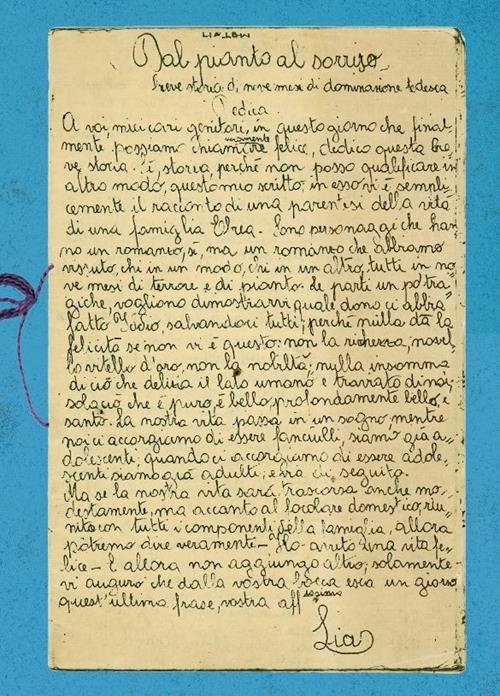 Dal pianto al sorriso
breve storia di nove mesi di dominazione tedesca
Dedica
A voi, miei cari genitori, in questo giorno che final-
mente possiamo chiamare veramente felice, dedico questa bre
ve storia. È storia, perché non posso qualificare in
altro modo, questo mio scritto: in esso vi è sempli
cemente il racconto di una parentesi della vita
di una famiglia Ebrea. Sono personaggi che han
no un romanzo, sì, ma un romanzo che abbiamo
vissuto, chi in un modo, chi in un altro, tutti in no-
ve mesi di terrore e di pianto. Le parti un po' tra
giche, vogliono dimostrarvi quale dono ci abbia
fatto Iddio, salvandoci tutti; perché nulla dà la
felicità se non vi è questo: non la ricchezza, novel-
lo vitello d'oro, non la nobiltà, nulla insomma
di ciò che delizia il lato umano e travisato di noi;
solo ciò che è puro, è bello, profondamente bello, e
santo. La nostra vita passa in un sogno, mentre
noi ci accorgiamo di essere fanciulli, siamo già a-
dolescenti; quando ci accorgiamo di essere adole-
scenti siamo già adulti; e via di seguito.
Ma se la nostra vita sarà trascorsa anche mo-
destamente, ma accanto al focolare domestico, riu-
nito con tutti i componenti della famiglia, allora
potremo dire veramente - Ho avuto una vita fe-
lice - E allora non aggiungo altro; solamente
vi auguro che dalla vostra bocca esca un giorno
quest'ultima frase, vostra aff ezionatissima
Lia